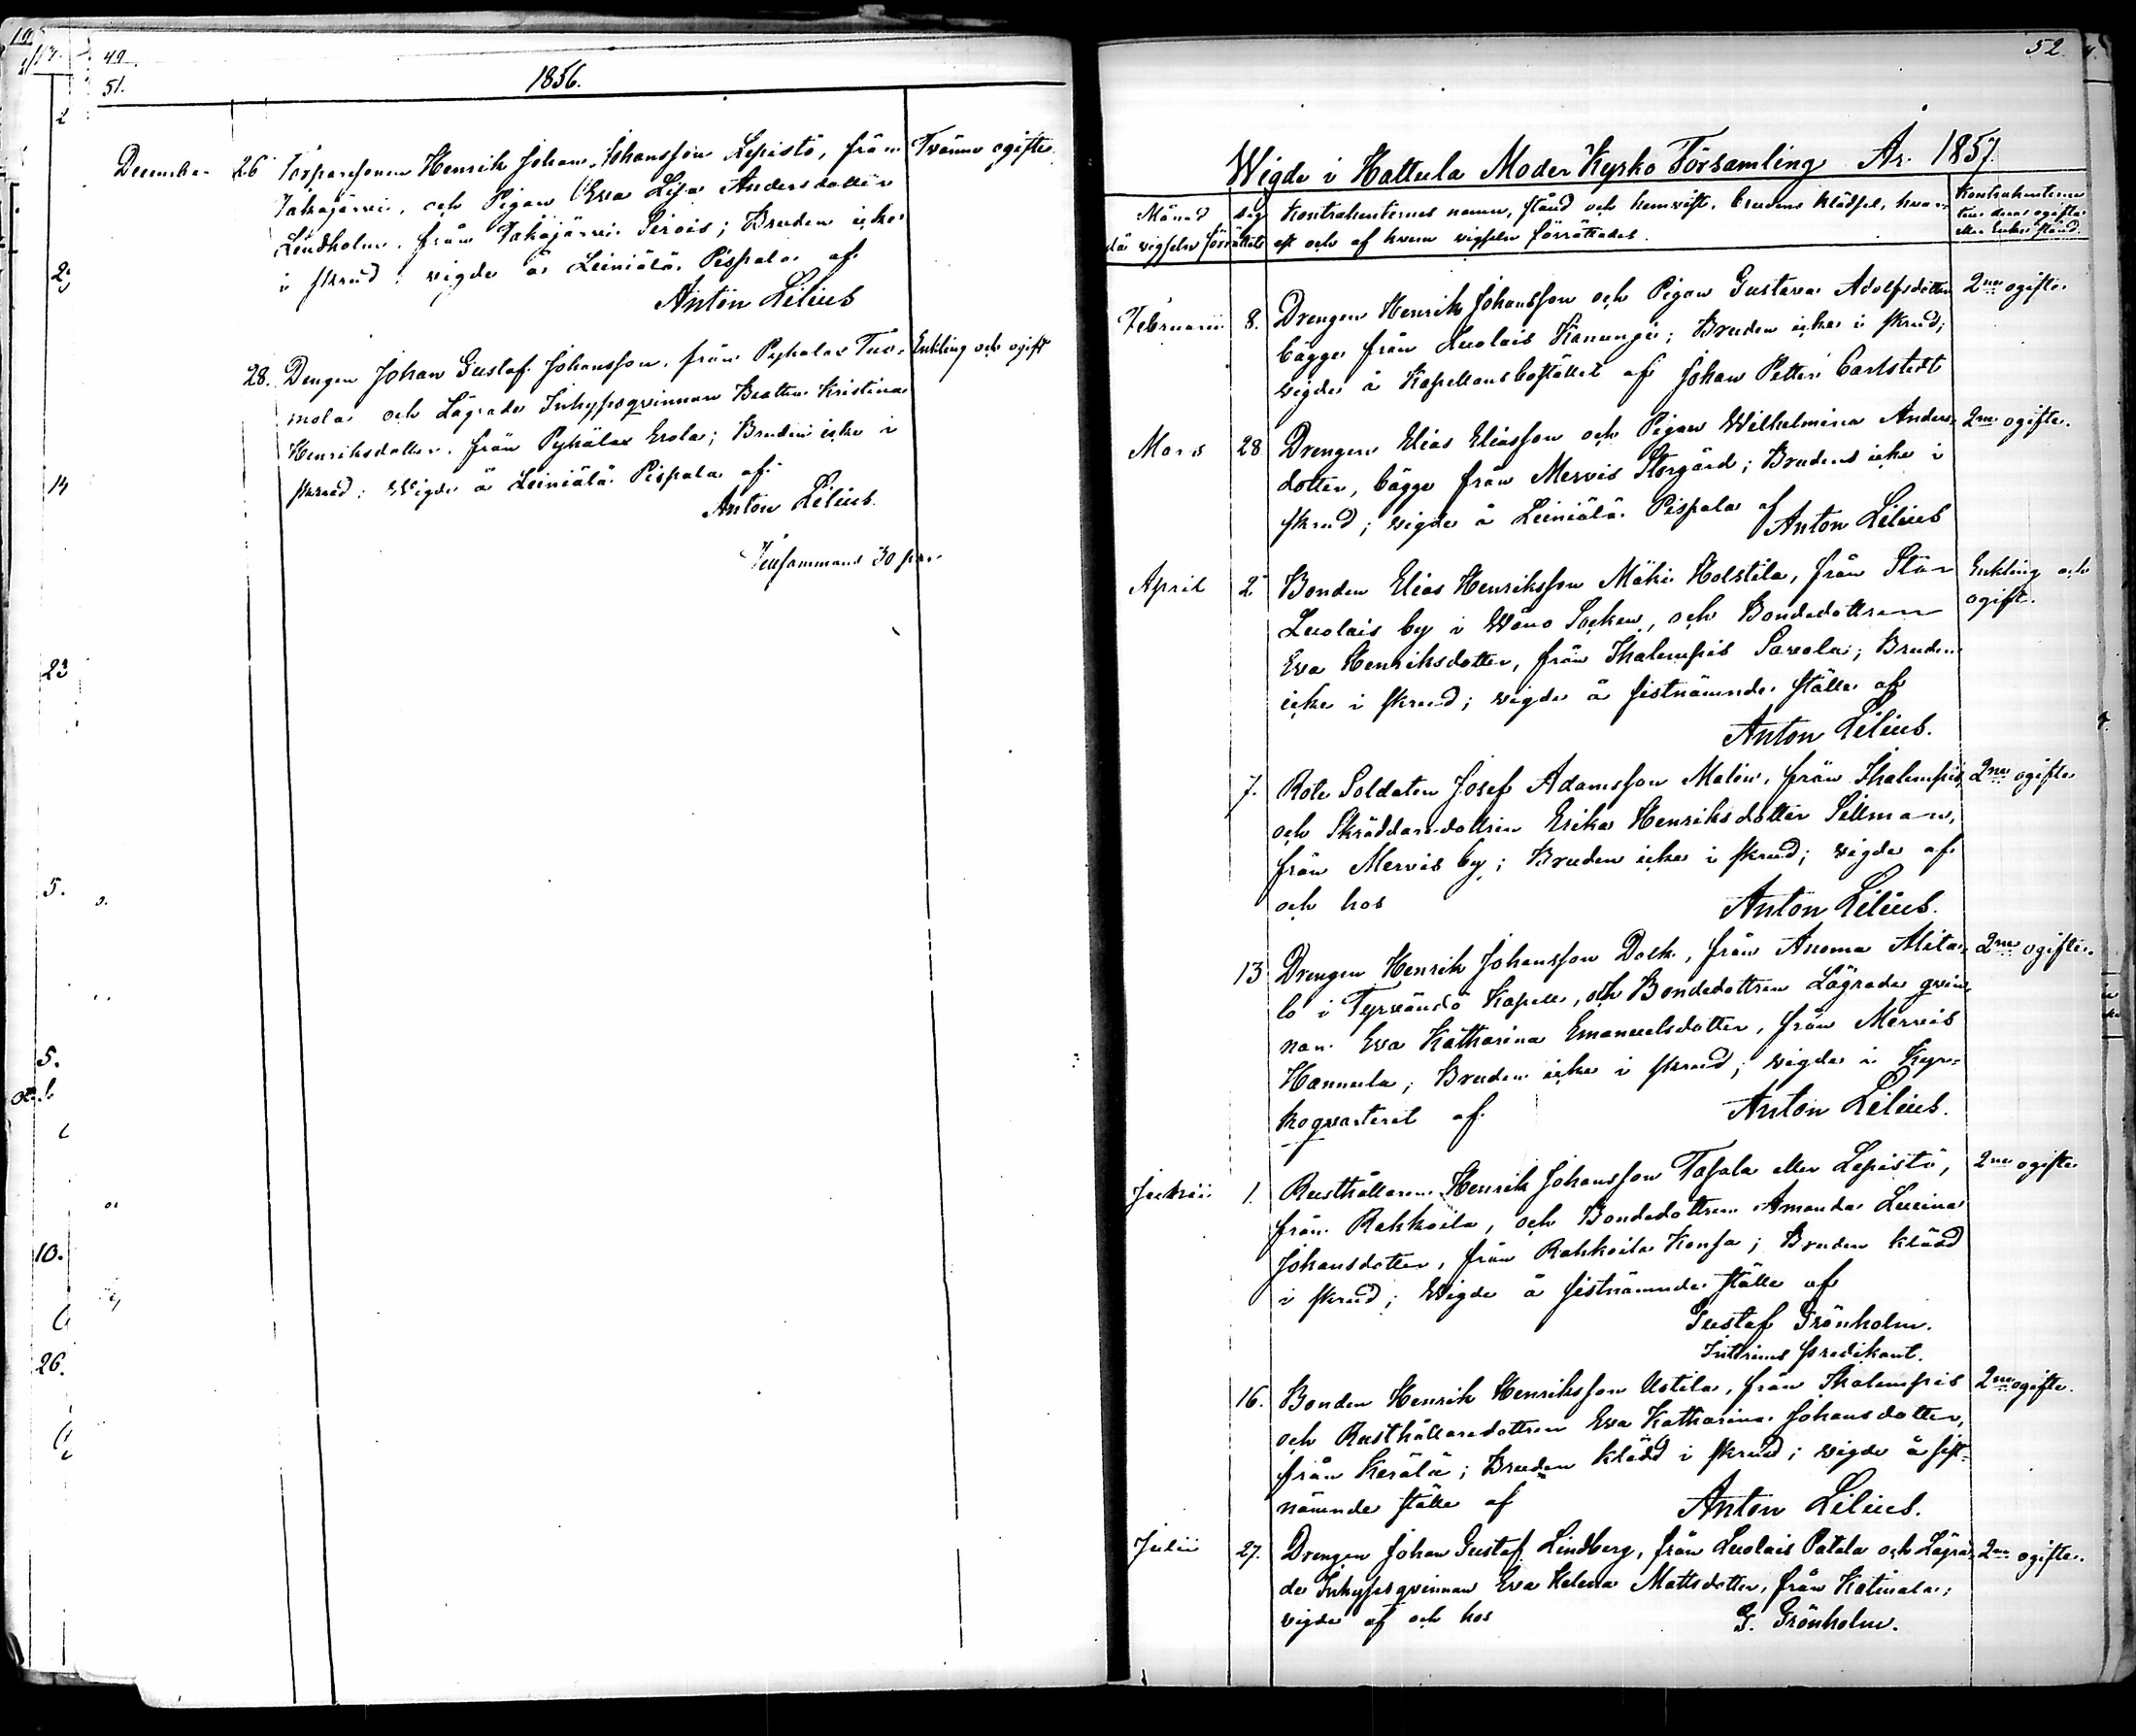 49.
51.
1856.
December 26 Torparesonen Henrik Johan Johansson Lepistö, från Tvänne ogifte
Takajärvi, och Pigan Eva Lisa Andersdotter
Lindholm, från Takajärvi Sirois; Bruden icke
i skrud; vigde å Leiniälä Pispala af
Anton Lilius
28. Drengen Johan Gustaf Johansson, från Pyhälax Tuo- Enkling och ogift
mola och Lägrade Inhysesqvinnan Beatha Kristina
Henriksdotter, från Pyhälax Erola; Bruden icke i
skrud; Wigde å Leiniälä Pispala af
Anton Lilius.
Tillsammans 30 par
52.
Wigde i Hattula Moder Kyrko Församling År 1857.
Månad dag Kontrahenternes namn, stånd och hemvist, brudens klädsel, hvar- Kontrahenternes
då vigseln förrättats est och af hvem vigseln förrättades. deras ogifta
eller Enke stånd.
Februarii 8. Drengen Henrik Johansson och Pigan Gustava Adolfsdotter 2ne ogifte
bägge från Luolais Kanungi; Bruden icke i skrud;
vigde å Kapellansbostället af Johan Petter Carlstedt
Mars 28 Drengen Elias Eliasson och Pigan Wilhelmina Anders- 2ne ogifte.
dotter, bägge från Mervis Storgård; Brudens icke i
skrud; vigde å Leiniälä Pispala af Anton Lilius
April 2 Bonden Elias Henriksson Mäki Holstila, från Stor Enkling och
Luolais by i Wåno Socken, och Bondedottren ogift.
Eva Henriksdotter, från Ihalempis Savola; Bruden
icke i skrud; vigde å sistnämnde ställe af
Anton Lilius.
7. Rote Soldaten Josef Adamsson Malin, från Ihalempis, 2ne ogifte
och Skräddaredottren Erika Henriksdotter Sillman,
från Mervis by; Bruden icke i skrud; vigde af
och hos Anton Lilius.
13 Drengen Henrik Johansson Dolk, från Anoma Alita- 2ne ogifte.
lo i Tyrväntö Kapell, och Bondedottren Lägrade qvin-
nan Eva Katharina Emanuelsdotter, från Mervis
Hannula; Bruden icke i skrud; vigde i Kyr-
koqvarteret af Anton Lilius.
Junii 1. Rusthållaren Henrik Johansson Tapala eller Lepistö, 2ne ogifte
från Rahkoila, och Bondedottren Amanda Lucina
Johansdotter, från Rahkoila Konsa; Bruden klädd
i skrud; Wigde å sistnämnde ställe af
Gustaf Grönholm.
Interims predikant.
16. Bonden Henrik Henriksson Uotila, från Ihalempis 2ne ogifte.
och Rusthållaredottren Eva Katharina Johansdotter,
från Kerälä; Bruden klädd i skrud; vigde å sist-
nämnde ställe af Anton Lilius.
Julii 27. Drengen Johan Gustaf Lindberg, från Luolais Pätilä och Lägra- 2ne ogifte.
de Inhysesqvinnan Eva Helena Mattsdotter, från Katinala;
vigde af och hos G. Grönholm.